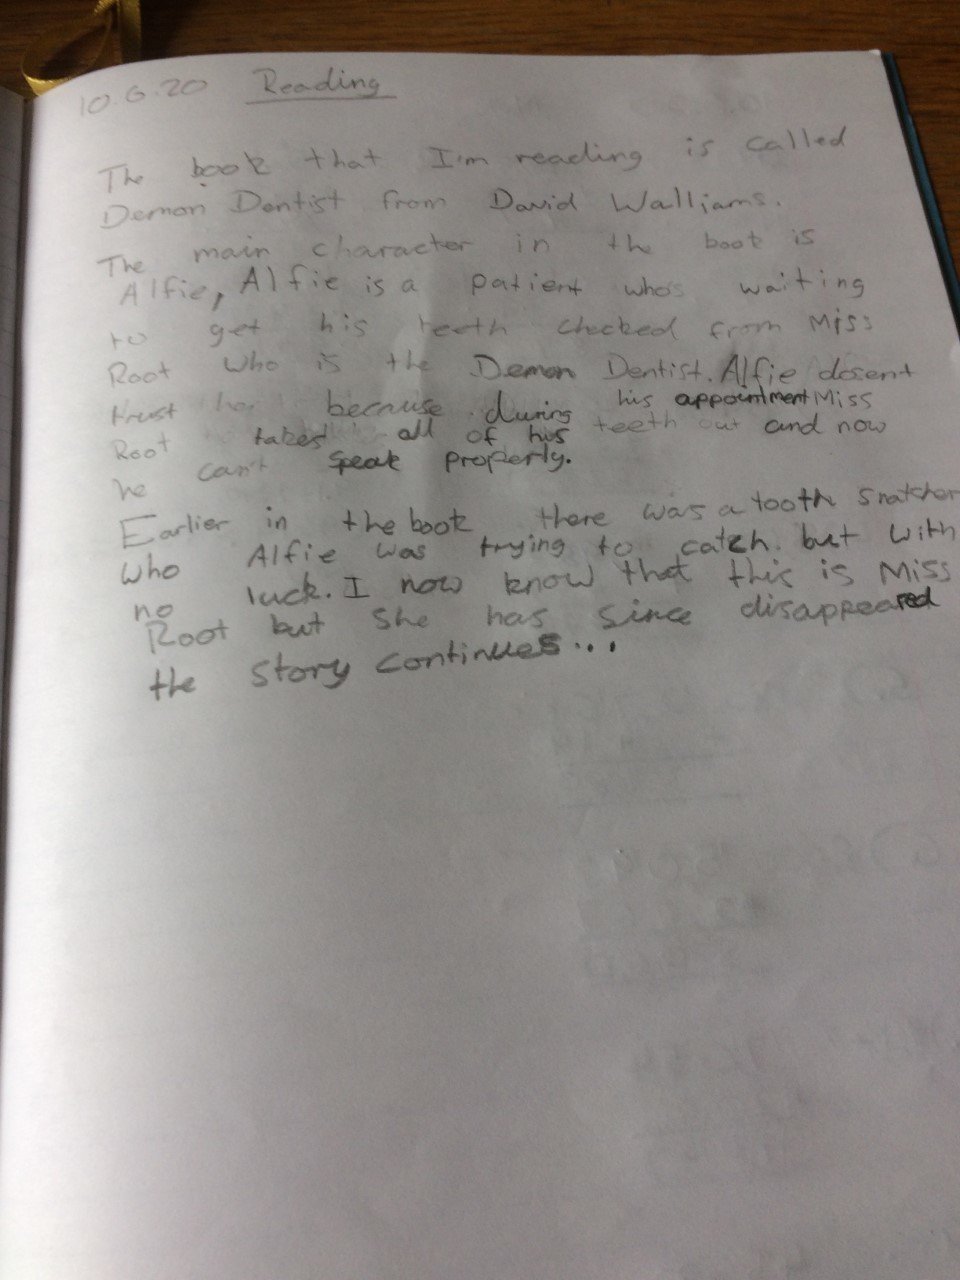 10.6.20 Reading
The book that I'm reading is called
Demon Dentist from David Walliams.
The main character in the book is
Alfie, Alfie is a patient who's waiting
to get his teeth checked from Miss
Root who is the Demon Dentist. Alfie dosent
trust her because during his appointment Miss
Root takes all of his teeth out and now
he can't speak properly.
Earlier in the book there was a tooth snatcher
who Alfie was trying to catch. but with
no luck. I now know that this is Miss
Root but she has since disappeared
the story continues...